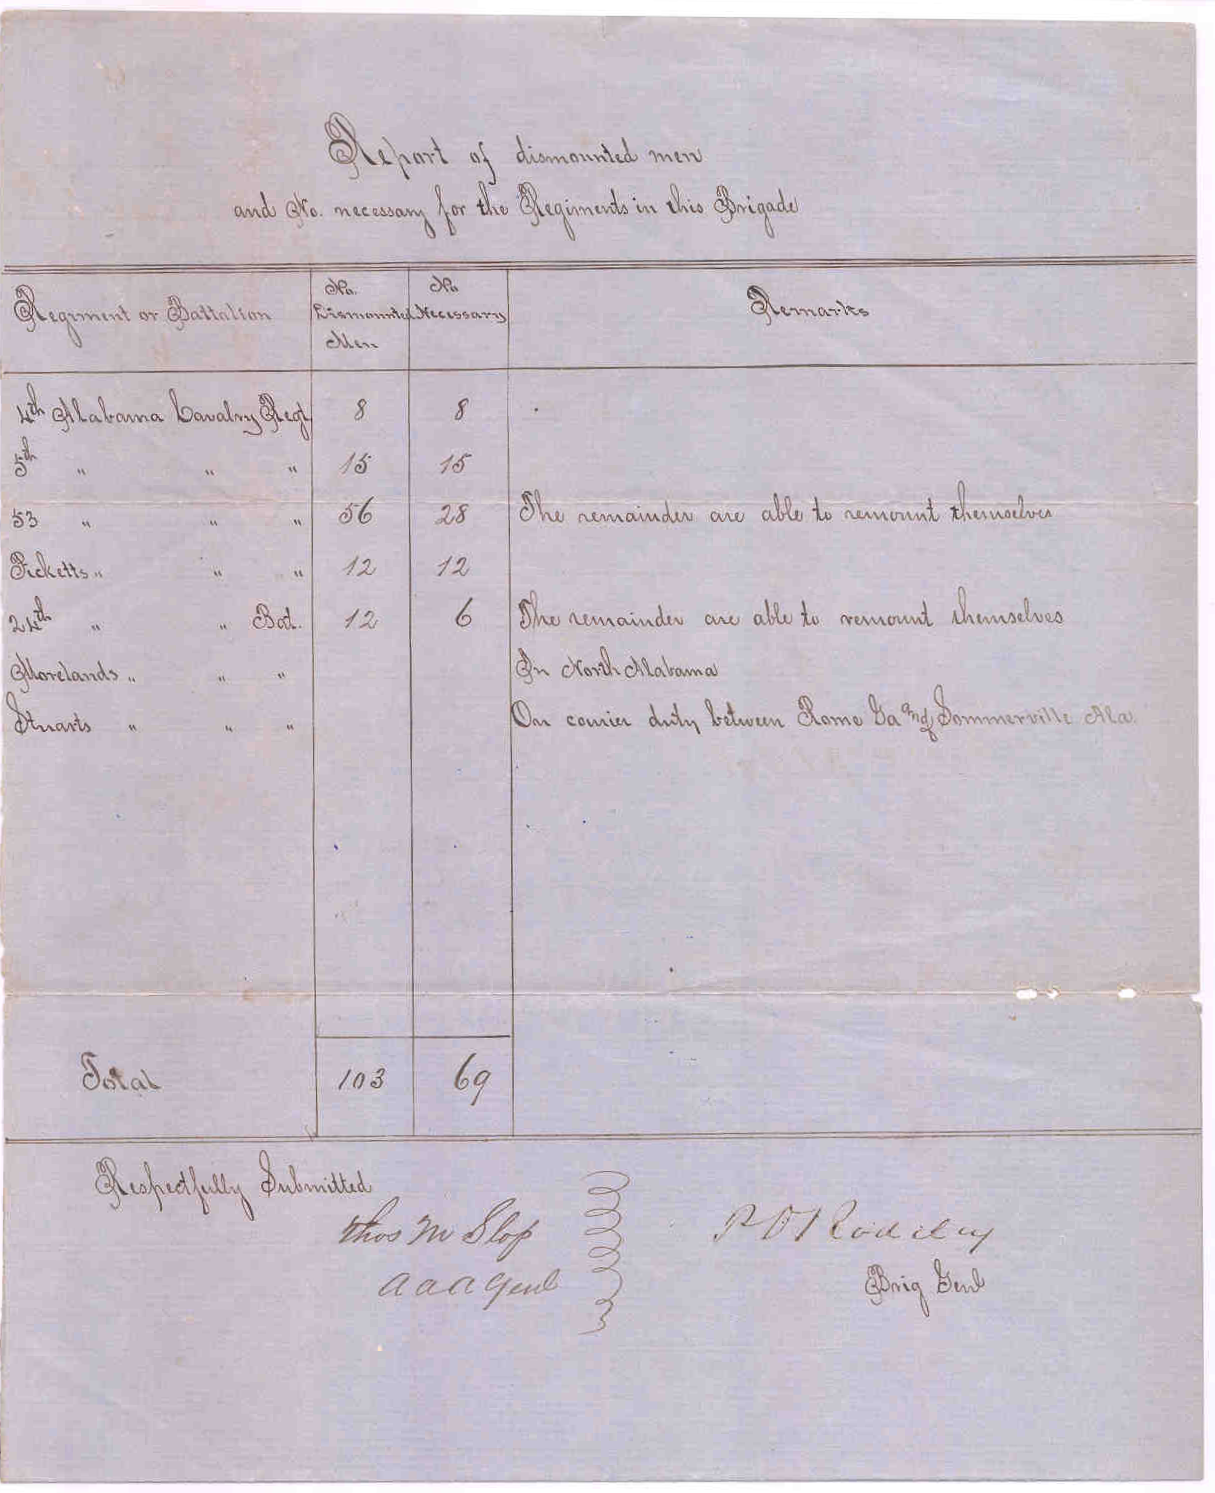 Report of dismounted men
and No. necessary for the Regiments in this Brigade
Regiment or Battalion No. Dismounted Men No Necessary Remarks
4th Alabama Cavalry Regt 8 8
5th " " " 15 15
53 " " " 56 28 The remainder are able to remount themselves
Picketts " " " 12 12
24th " " Bat. 12 6 The remainder are able to remount themselves
Morelands " " " In North Alabama
Stuarts " " " On courier duty between Rome Ga and Sommerville Ala.
Total 103 69
Respectfully Submitted
Thos M Slop P D Roddey
a a a Genl Brig Genl